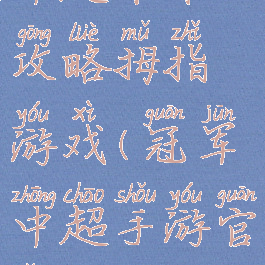 gōng lüè mǔ zhǐ
攻略拇指
yóu xì guān jūn
游戏(冠军
zhōng chāo shǒu yóu guān
中超手游官